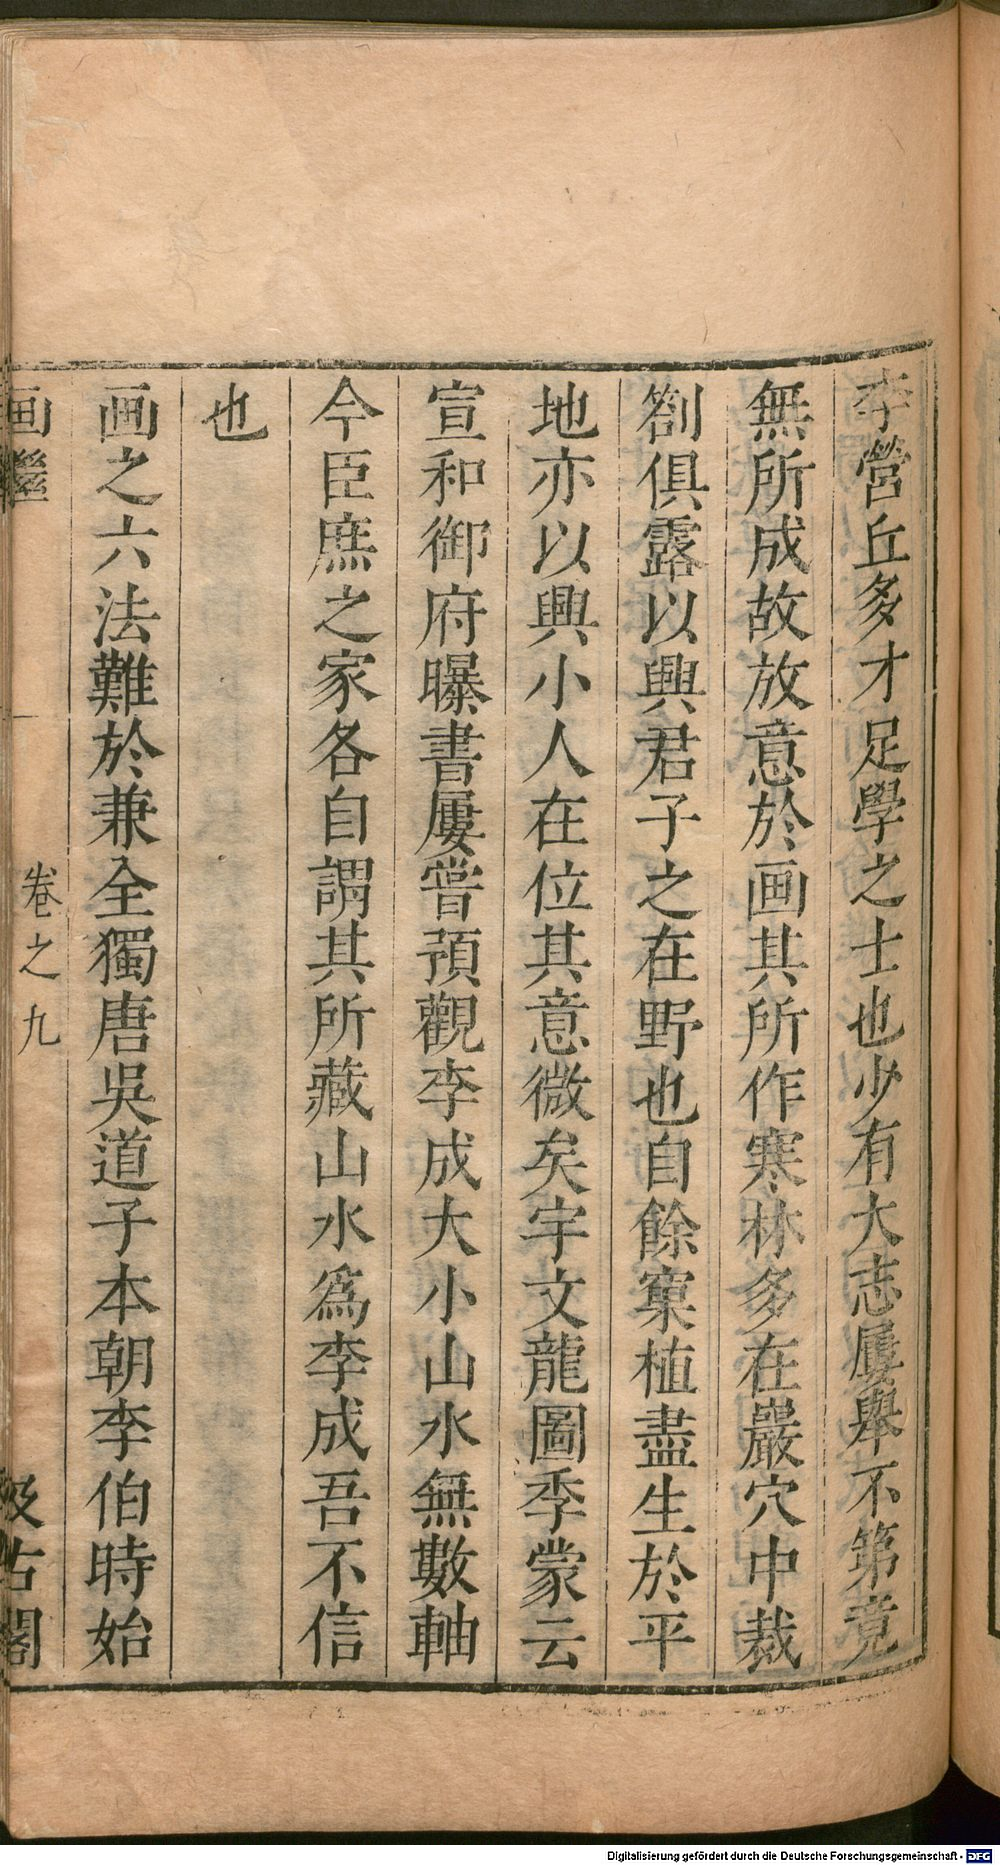 李營丘多才足學之士也少有大志屢舉不第竟
無所成故放意於画其所作寒林多在巖穴中裁
劄俱露以興君子之在野也自餘窠植盡生於平
地亦以興小人在位其意微矣宇文龍圖季蒙云
宣和御府曝書屢嘗預觀李成大小山水無數軸
今臣庶之家各自謂其所藏山水爲李成吾不信
也
画之六法難於兼全獨唐吳道子本朝李伯時始
画繼 卷之九 汲古閣
Digitalisierung gefördert durch die Deutsche Forschungsgemeinschaft - DFG